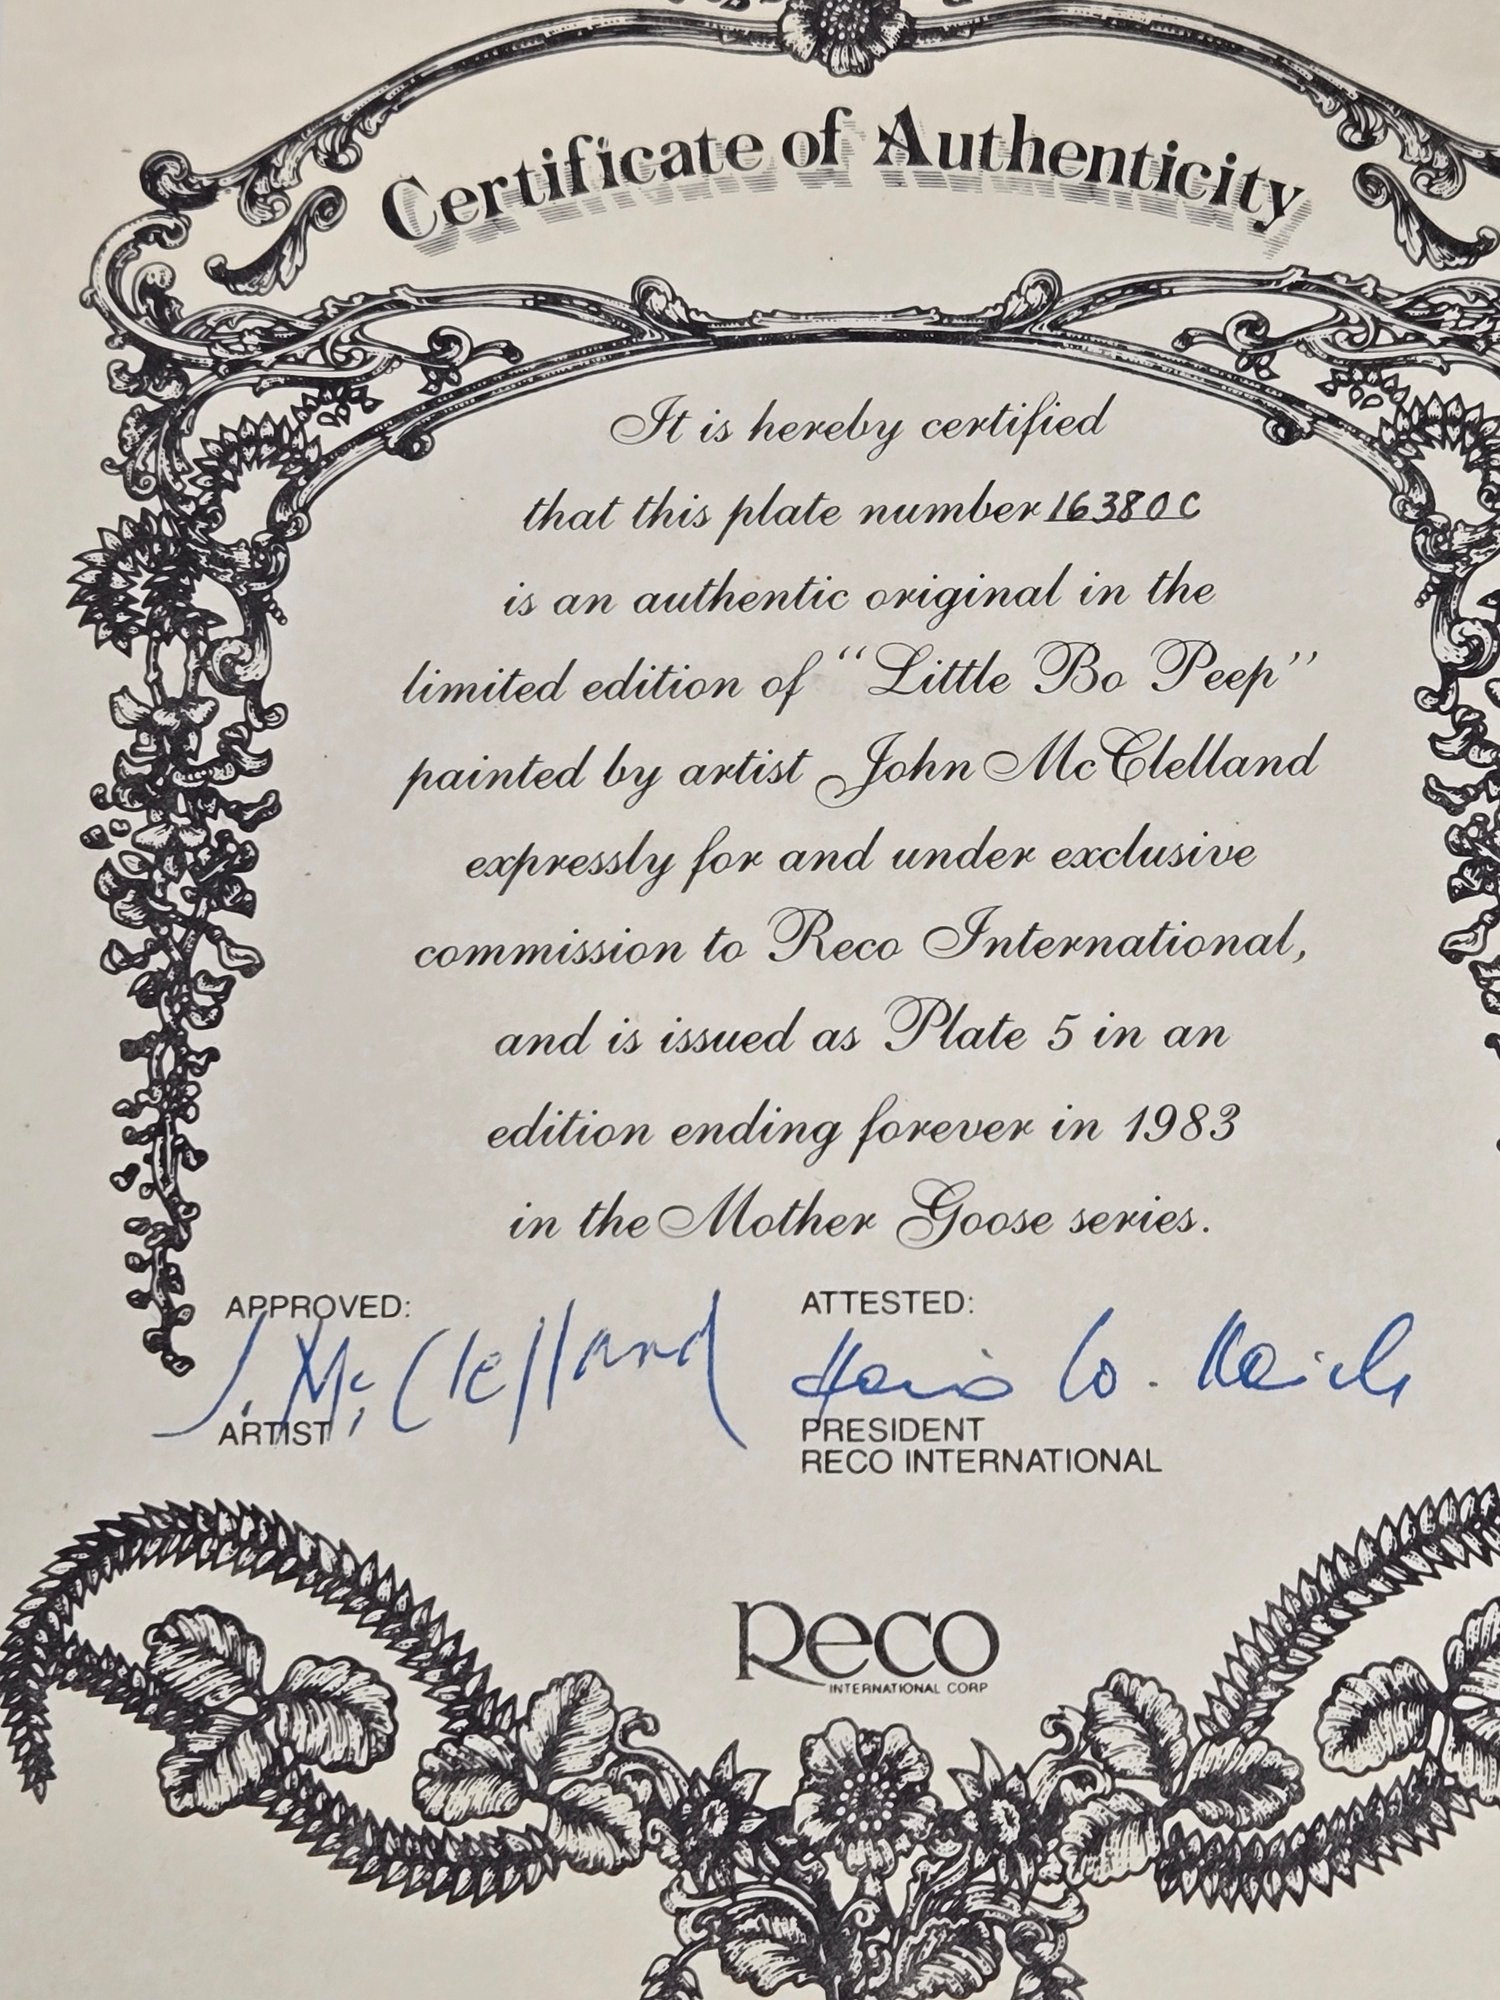 Certificate of Authenticity
It is hereby certified
that this plate number 16380C
is an authentic original in the
limited edition of "Little Bo Peep"
painted by artist John McClelland
expressly for and under exclusive
commission to Reco International,
and is issued as Plate 5 in an
edition ending forever in 1983
in the Mother Goose series.
APPROVED: ATTESTED:
J. McClelland
ARTIST PRESIDENT
RECO INTERNATIONAL
RECO
INTERNATIONAL CORP